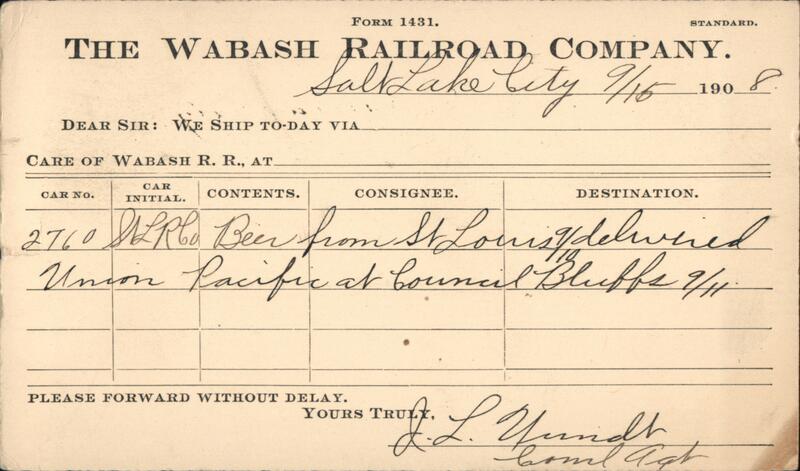 FORM 1431.
STANDARD.
THE WABASH RAILROAD COMPANY.
Salt Lake City 9/15 1908
DEAR SIR: WE SHIP TO-DAY VIA
CARE OF WABASH R. R., AT
CAR NO. CAR INITIAL. CONTENTS. CONSIGNEE. DESTINATION.
2760 St L R Co Beer from St Louis 9/10 delivered
Union Pacific at Council Bluffs 9/11.
PLEASE FORWARD WITHOUT DELAY.
YOURS TRULY,
J. L.
Coml Agt